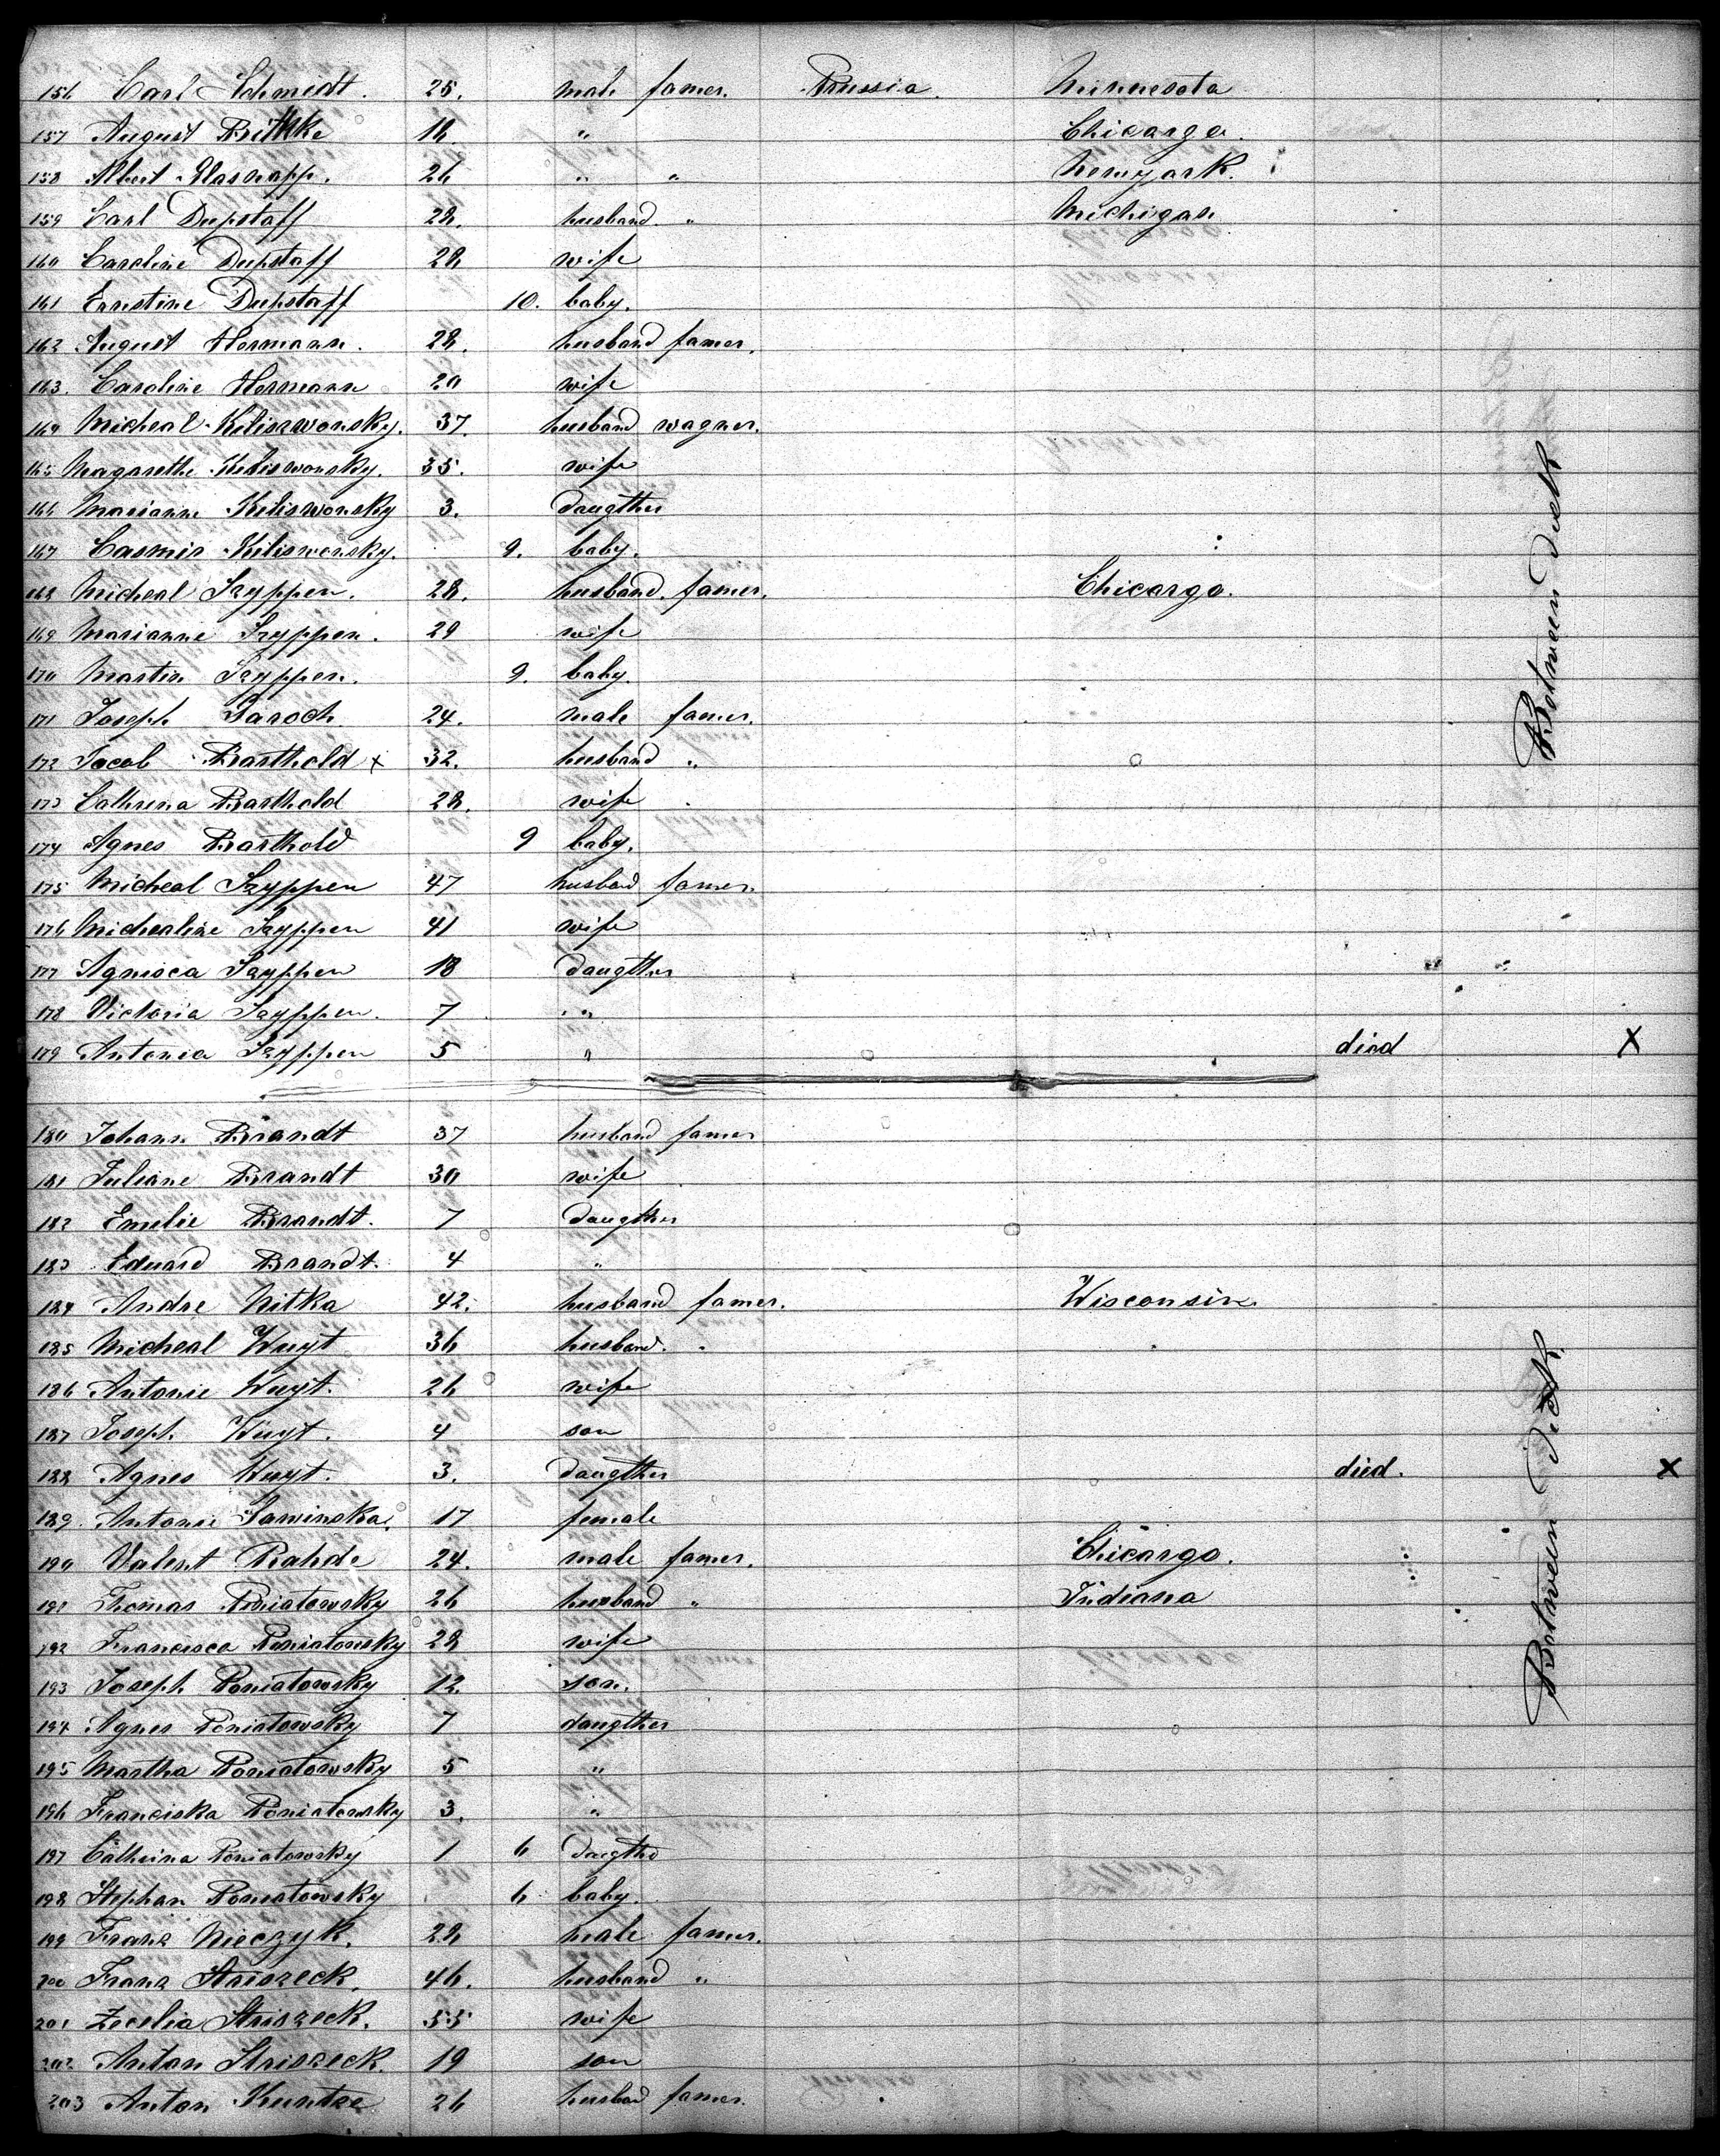 156 Carl Schmidt. 25. male famer. Prussia. Minnesota
157 August Bethke 18 " Chicargo.
158 Albert Glasnapp. 26 " " Newyark.
159 Carl Dupstaff 28. husband. " Michigan
160 Caroline Dupstaff 28 wife
161 Ernestine Dupstaff 10. baby.
162 August Hermann. 28. husband famer.
163. Caroline Hermann 20 wife
164 Micheal Kiliszwonsky. 37. husband wagner.
165 Magarethe Kiliswonsky. 35. wife
166 Marianne Kiliswonsky 3. daugther
167 Casmir Kiliswonsky. 9. baby.
168 Micheal Szyppen. 28. husband. famer. Chicargo.
169 Marianne Szyppen. 29 wife
170 Martin Szyppen. 9. baby.
171 Joseph Paroch 24. male famer.
172 Jacob Barthold x 32. husband "
173 Cathrina Barthold 28. wife
174 Agnes Barthold 9 baby.
175 Micheal Szyppen 47 husband famer.
176 Michealine Szyppen 41 wife
177 Agnisca Szyppen 18 daugther
178 Victoria Szyppen. 7 "
179 Antonia Szyppen 5 " died X
Between Deck
180 Johann Brandt 37 husband famer
181 Juliane Brandt 30 wife
182 Emelie Brandt. 7 daugther
183 Eduard Brandt. 4 "
184 Andre Nitka 42. husband famer. Wisconsin.
185 Micheal Wuyt 36 husband. "
186 Antonie Wuyt. 26 wife
187 Joseph Wuyt. 4 son
188 Agnes Wuyt. 3. daugther died. X
189. Antonie Sawinska. 17 female
190 Valent Rahde 24. male famer. Chicargo.
191 Thomas Poniatowsky 26 husband " Indiana
192 Francisca Poniatowsky 28 wife
193 Joseph Poniatowsky 12. son.
194 Agnes Poniatowsky 7 daugther
195 Martha Poniatowsky 5 "
196 Franciska Poniatowsky 3. "
197 Cathrina Poniatowsky 1 6 daugther
198 Stephan Poniatowsky 6 baby.
199 Franz Nieczyk. 28 male famer.
200 Franz Striszeck. 46. husband "
201 Zecelia Striszeck. 55 wife
202 Anton Striszeck. 19 son
203 Anton Kuntze 26 husband famer.
Between Deck